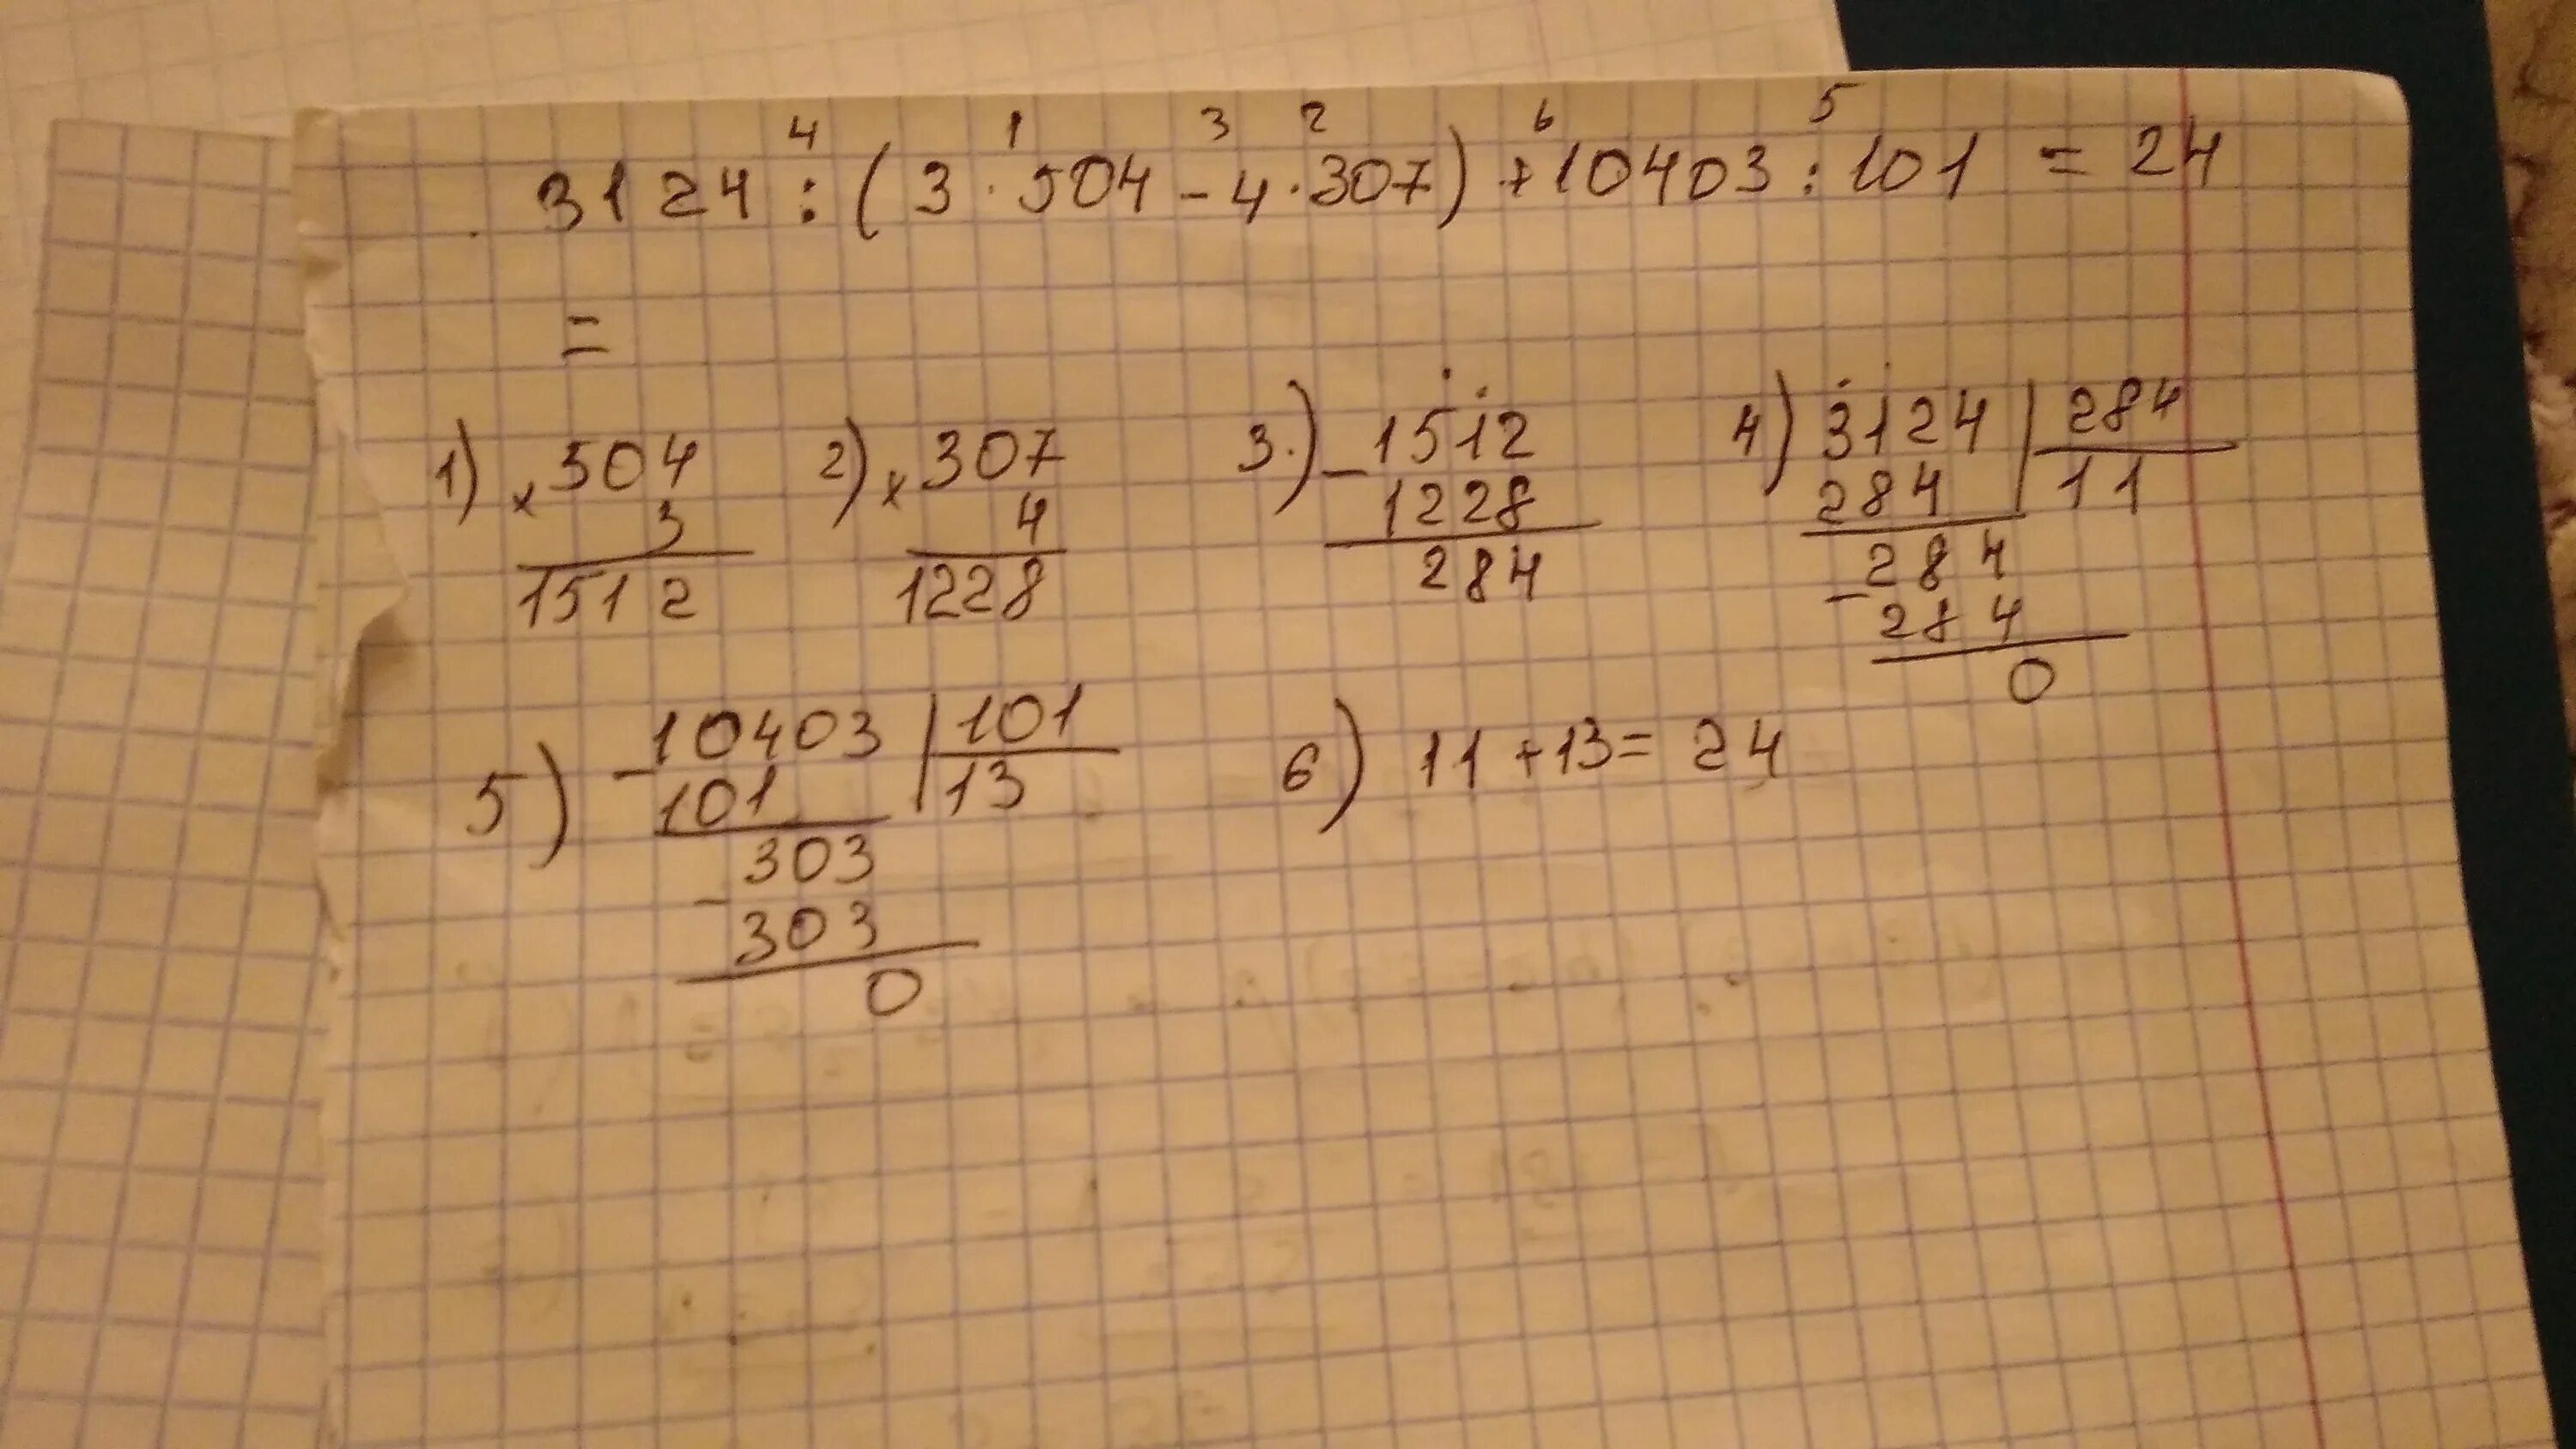 4 1 3 2 6 5
3124 : ( 3 · 504 - 4 · 307 ) + 10403 : 101 = 24
=
1) × 504 2) × 307 3.) - 1512 4) 3124 | 284
3 4 1228 284 | 11
1512 1228 284 - 284
284
0
5) - 10403 | 101 6) 11 + 13 = 24
101 | 13
303
- 303
0